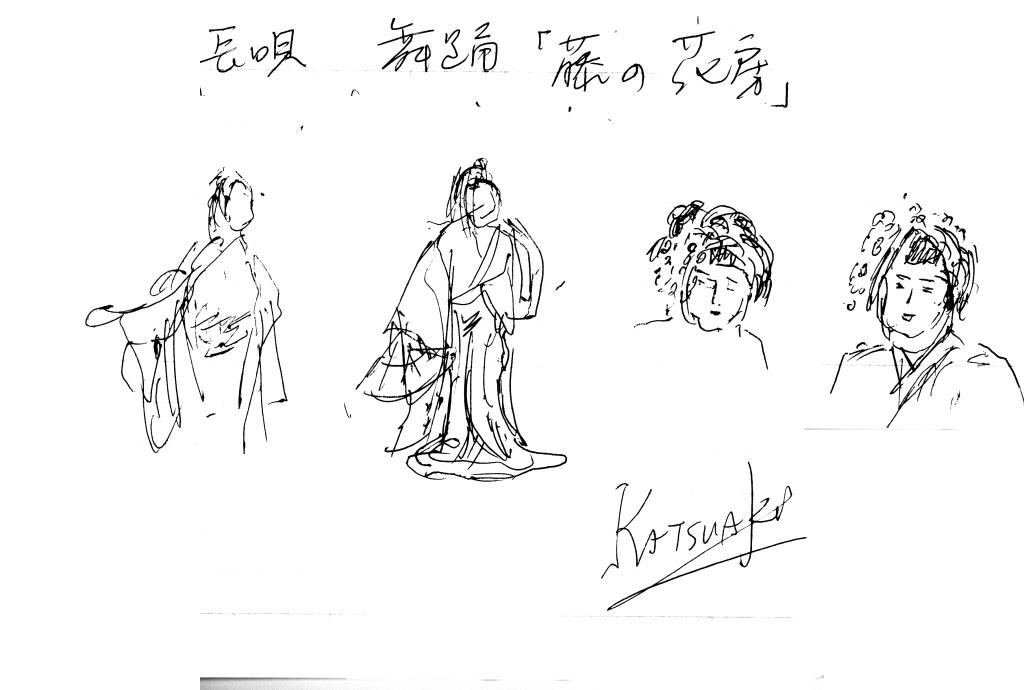 長唄 舞踊「藤の花房」
KATSUAKI